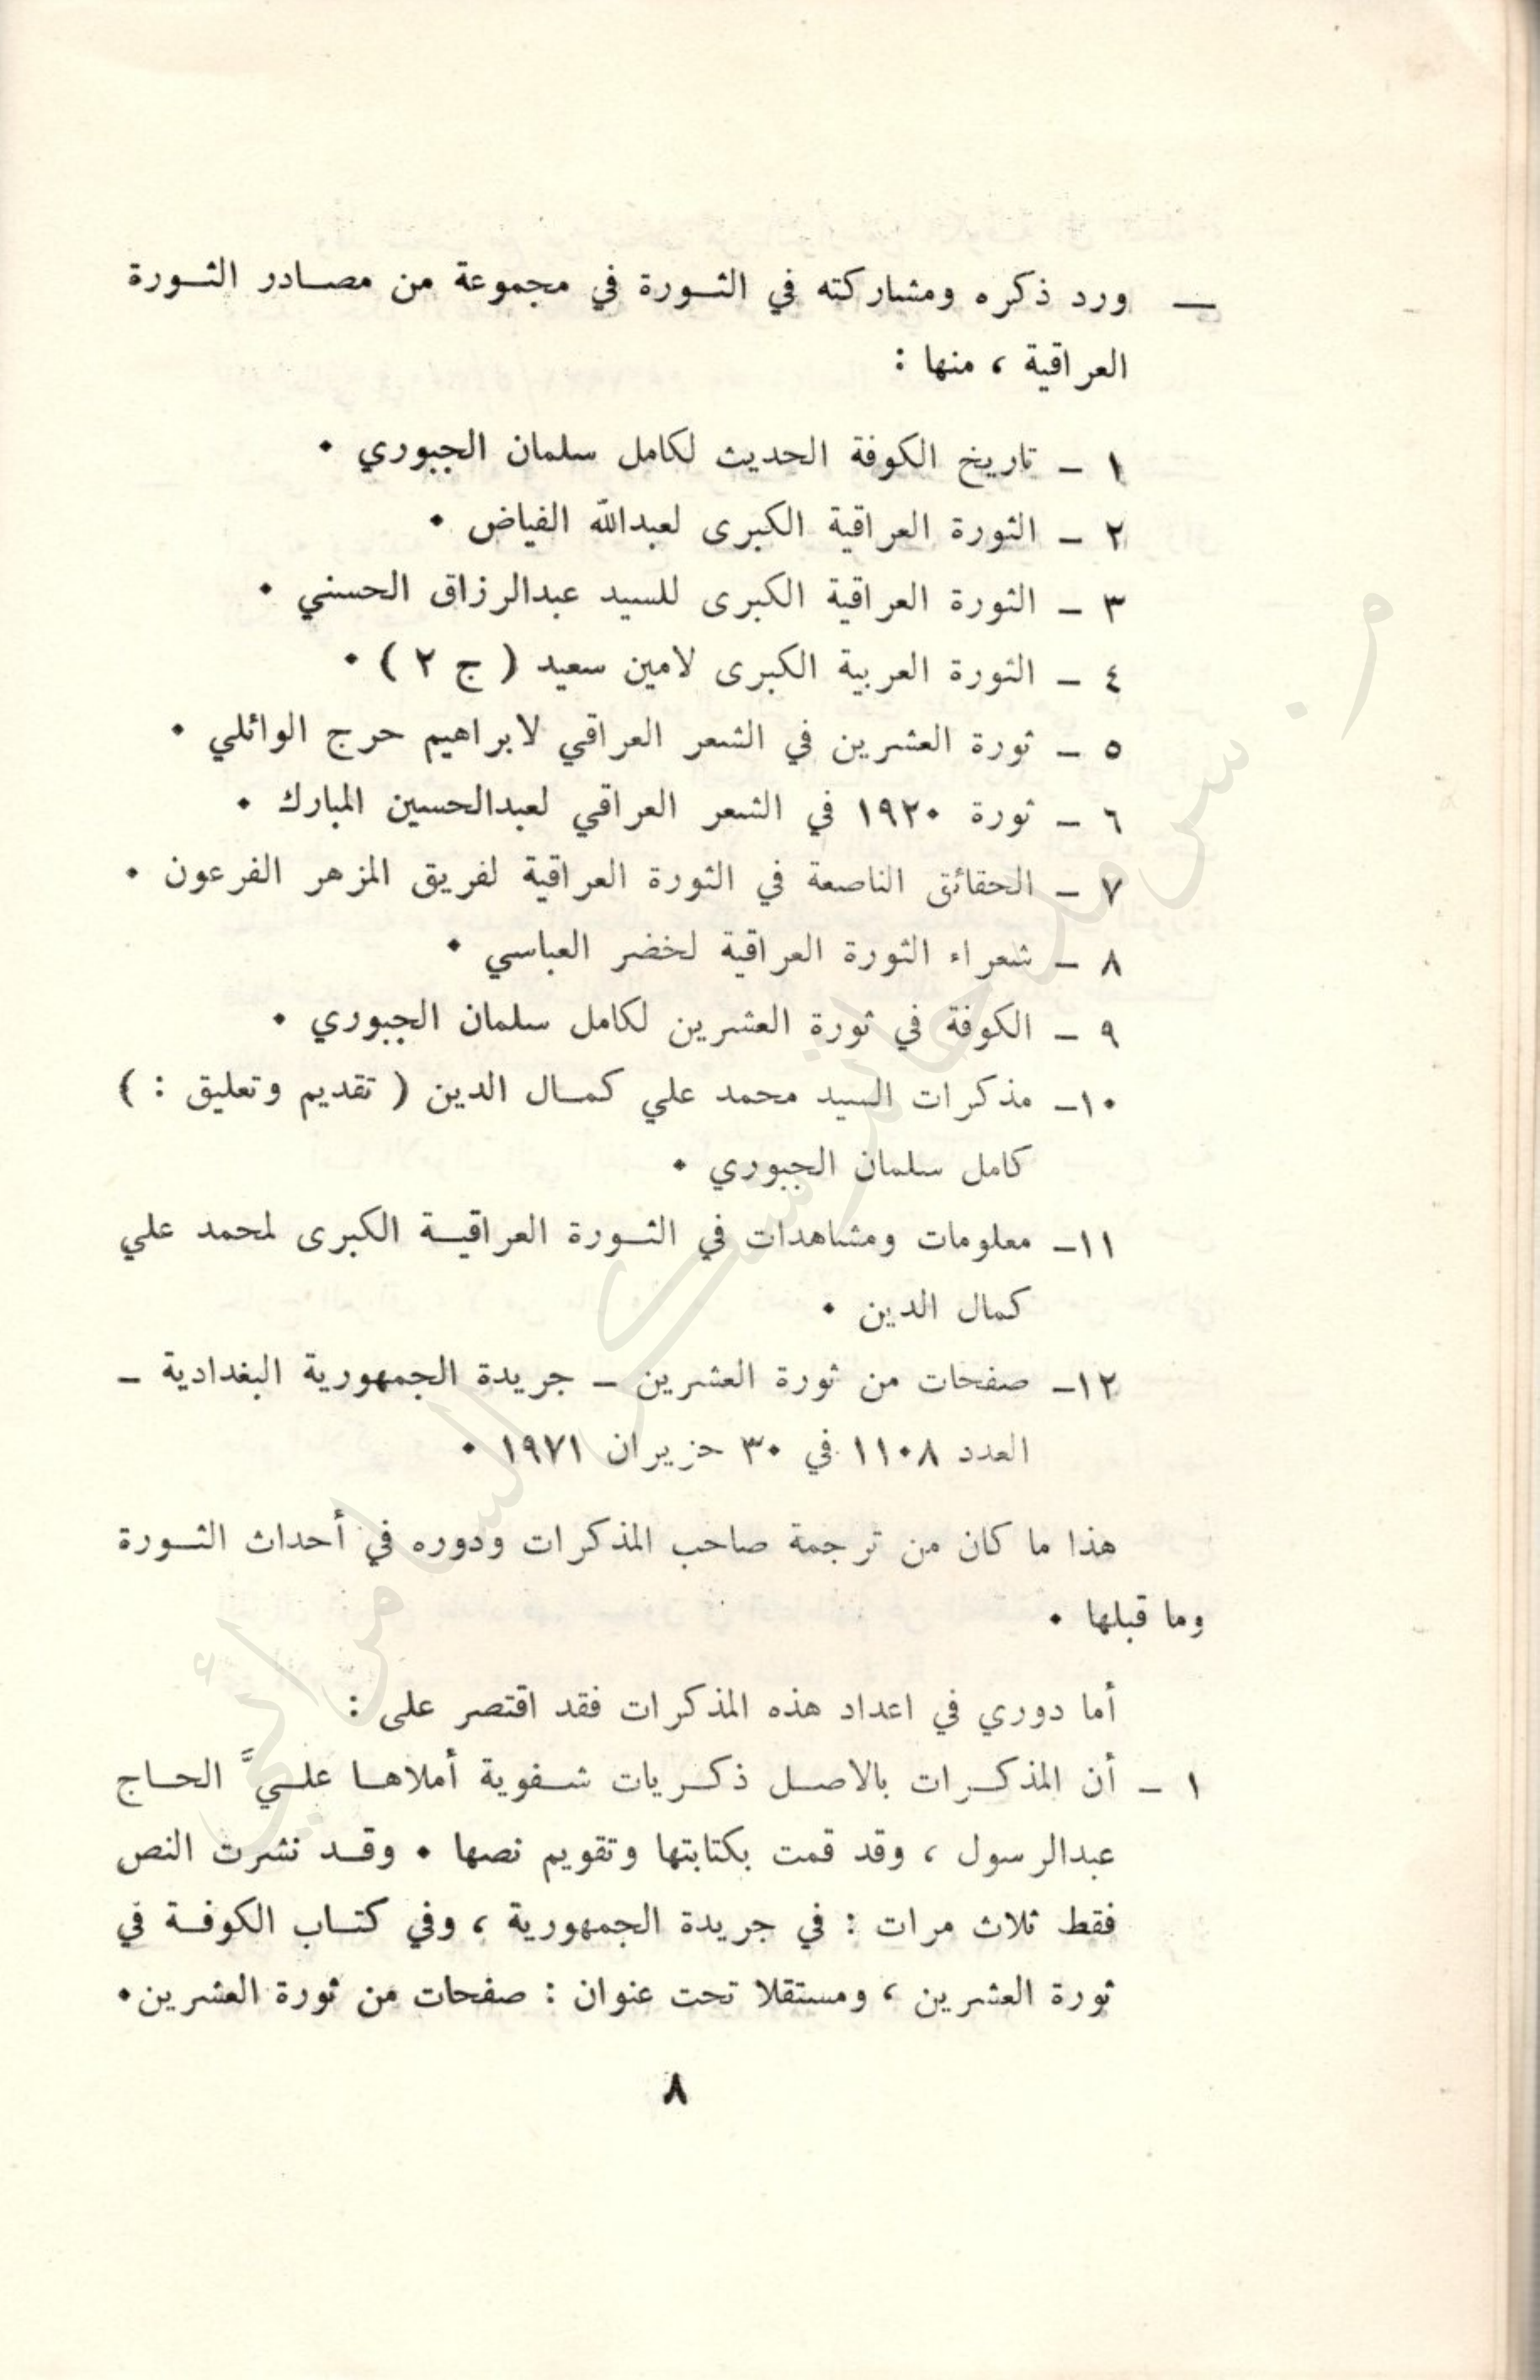 — ورد ذكره ومشاركته في الثــورة في مجموعة من مصــادر الثــورة
العراقية ، منها :
١ – تاريخ الكوفة الحديث لكامل سلمان الجبوري •
٢ – الثورة العراقية الكبرى لعبدالله الفياض •
٣ – الثورة العراقية الكبرى للسيد عبدالرزاق الحسني •
٤ – الثورة العربية الكبرى لامين سعيد ( ج ٢ ) •
٥ – ثورة العشرين في الشعر العراقي لابراهيم حرج الوائلي •
٦ – ثورة ١٩٢٠ في الشعر العراقي لعبدالحسين المبارك •
٧ – الحقائق الناصعة في الثورة العراقية لفريق المزهر الفرعون •
٨ – شعراء الثورة العراقية لخضر العباسي •
٩ – الكوفة في ثورة العشرين لكامل سلمان الجبوري •
١٠– مذكرات السيد محمد علي كمــال الدين ( تقديم وتعليق : )
كامل سلمان الجبوري •
١١– معلومات ومشاهدات في الثــورة العراقيــة الكبرى لمحمد علي
كمال الدين •
١٢– صفحات من ثورة العشرين – جريدة الجمهورية البغدادية –
العدد ١١٠٨ في ٣٠ حزيران ١٩٧١ •
هذا ما كان من ترجمة صاحب المذكرات ودوره في أحداث الثــورة
وما قبلها •
أما دوري في اعداد هذه المذكرات فقد اقتصر على :
١ – أن المذكــرات بالاصــل ذكــريات شــفوية أملاهــا علــيَّ الحــاج
عبدالرسول ، وقد قمت بكتابتها وتقويم نصها • وقــد نشرت النص
فقط ثلاث مرات : في جريدة الجمهورية ، وفي كتــاب الكوفــة في
ثورة العشرين ، ومستقلا تحت عنوان : صفحات من ثورة العشرين•
٨